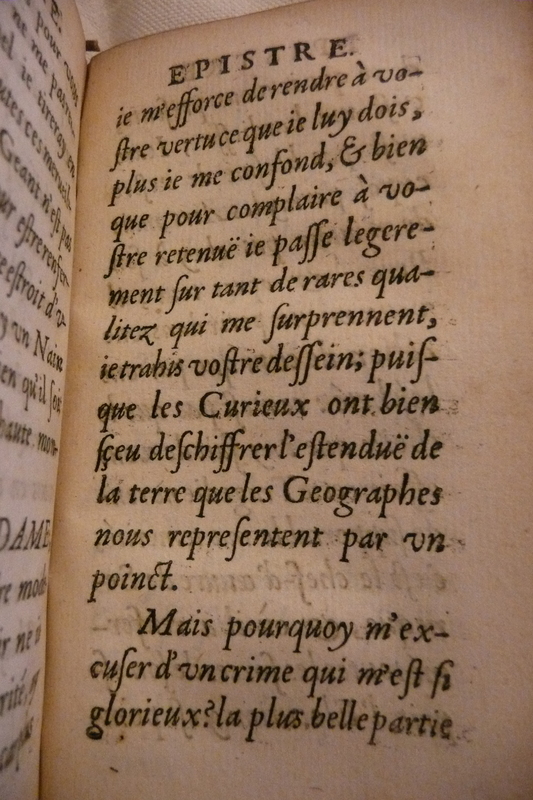 EPISTRE.
ie m'efforce de rendre à vo-
ſtre vertu ce que ie luy dois,
plus ie me confond, & bien
que pour complaire à vo-
ſtre retenuë ie paſſe legere-
ment ſur tant de rares qua-
litez qui me ſurprennent,
ie trahis voſtre deſſein; puiſ-
que les Curieux ont bien
ſçeu deſchiffrer l'eſtenduë de
la terre que les Geographes
nous repreſentent par vn
poinct.
Mais pourquoy m'ex-
cuſer d'vn crime qui m'eſt ſi
glorieux? la plus belle partie
E.
pour vous
ne me
ie tireray en
Geant n'eſt pas
eſtroit d'v-
vn Nain
qu'il ſoit
haute mon-
DAME
ne